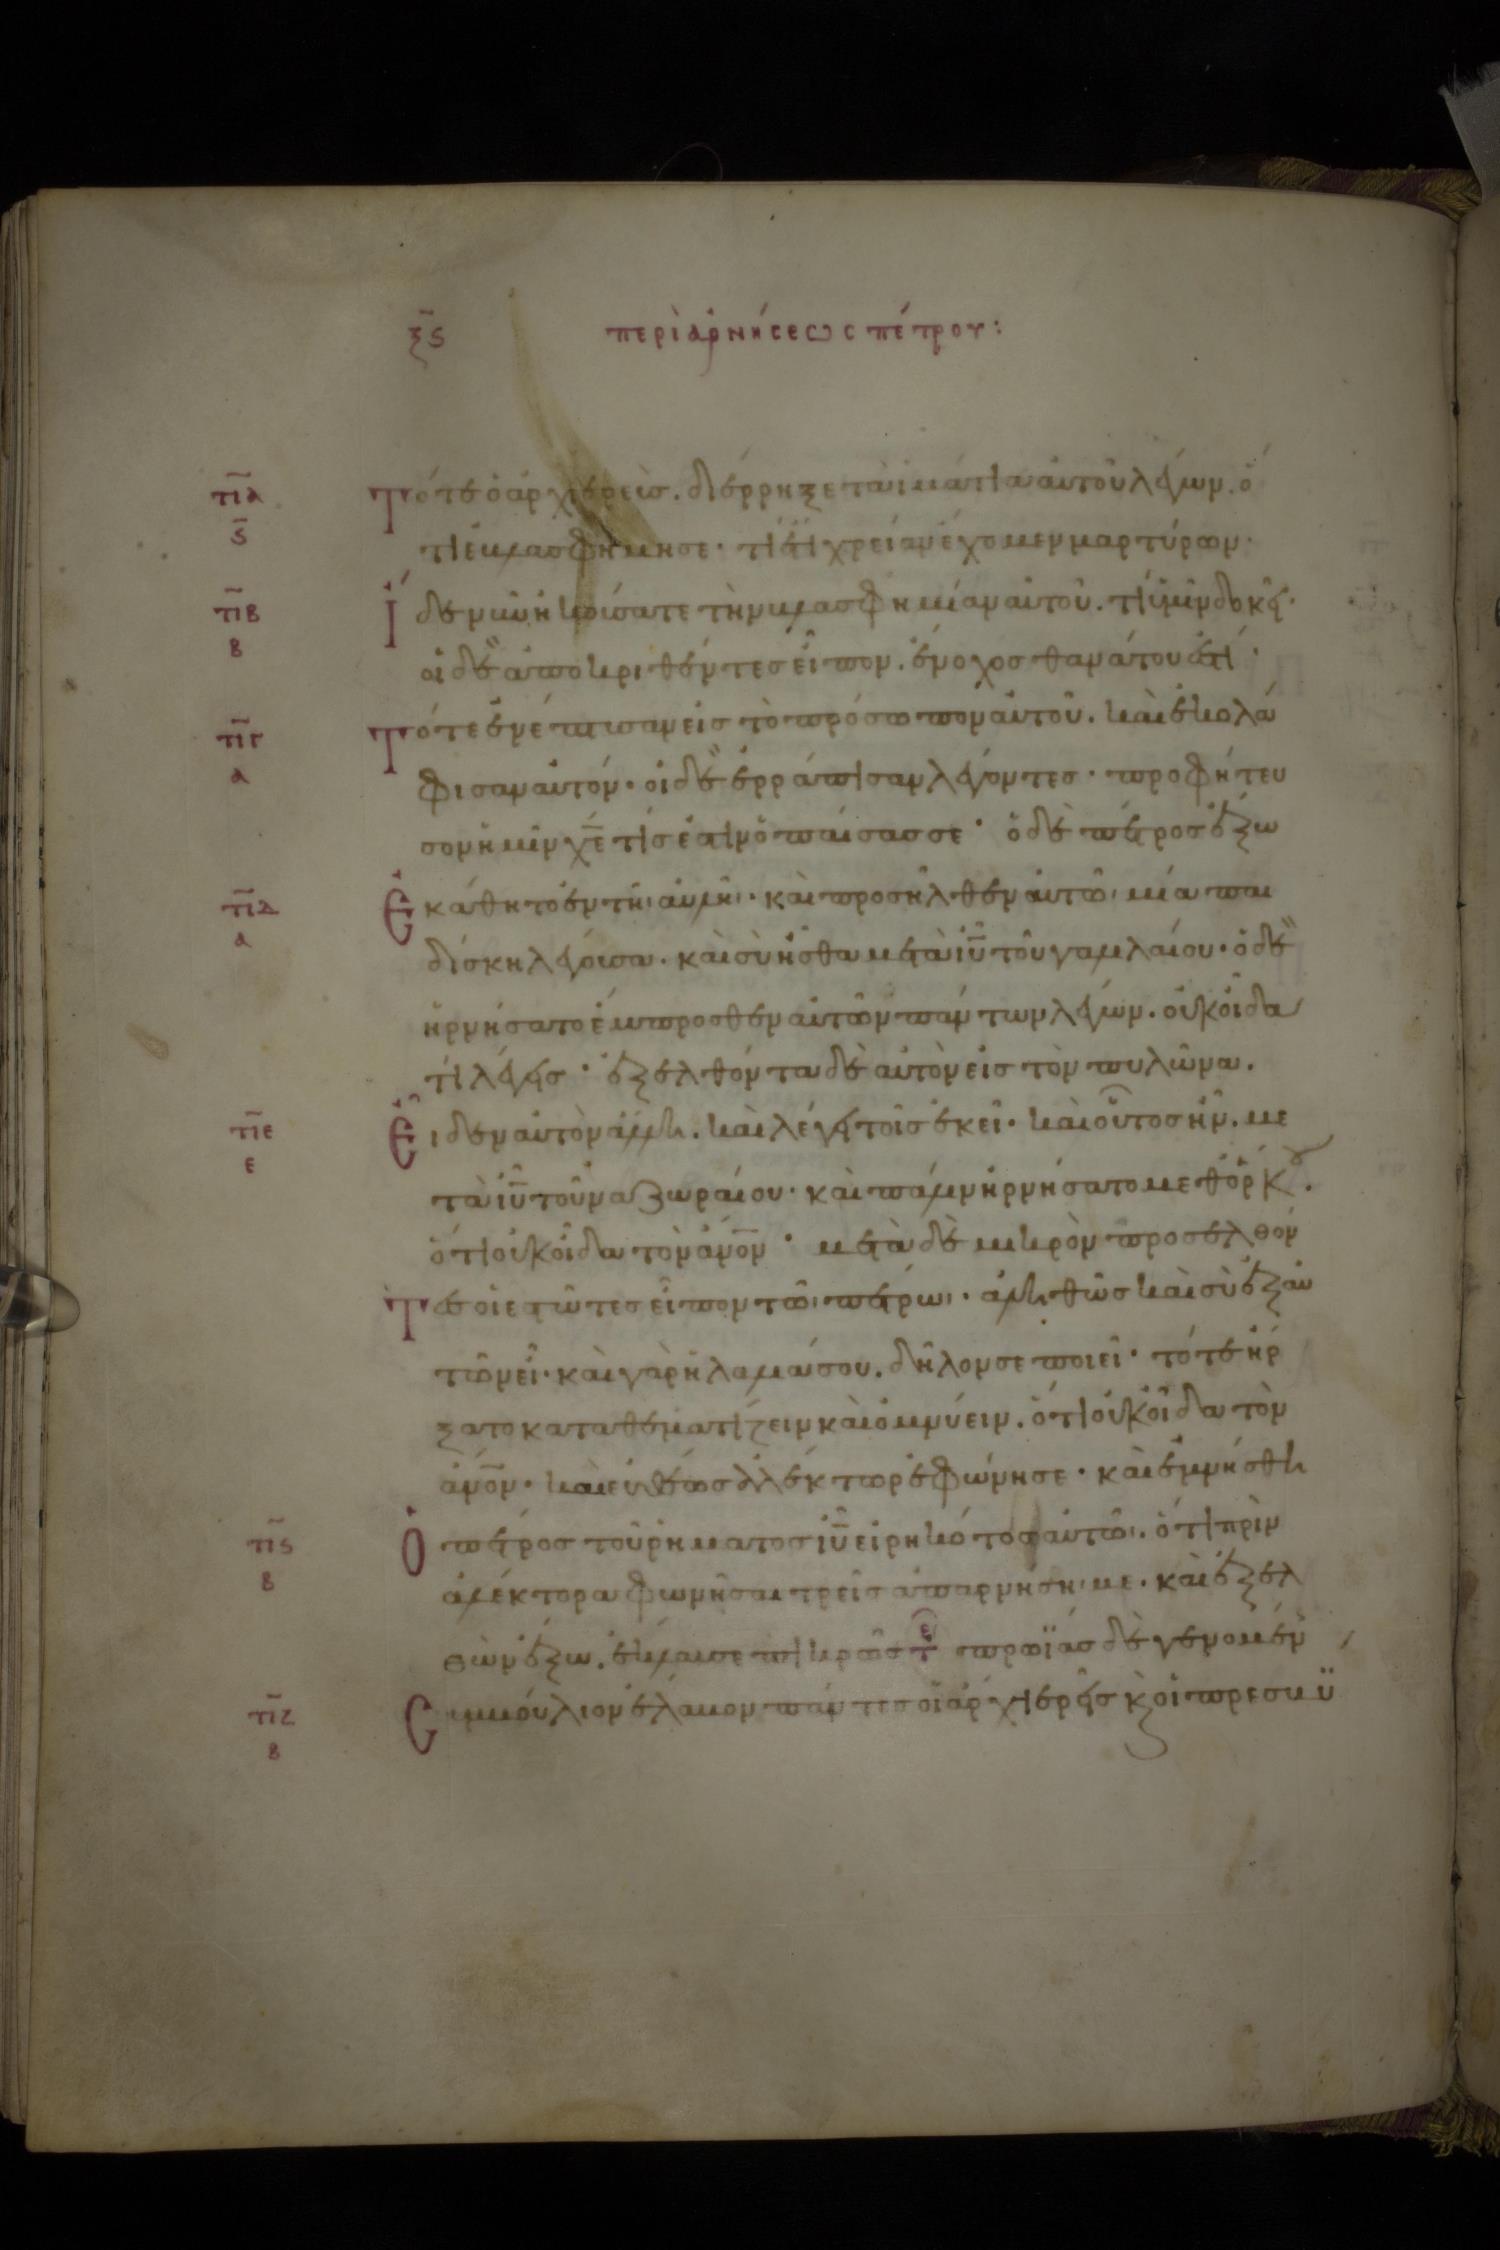 ξς περὶ ἀρνήσεως πέτρου:
τια τότε ὁ ἀρχιερεὺς. διέρρηξε τὰ ἱμάτια αὐτοῦ λέγων. ὅ
ς τι ἐβλασφήμησε· τί ἔτι χρείαν ἔχομεν μαρτύρων·
τιβ ἴδε νῦν ἠκούσατε τὴν βλασφημίαν αὐτοῦ. τί ὑμῖν δοκεῖ·
β οἱ δὲ ἀποκριθέντες εἶπον. ἔνοχος θανάτου ἐστί·
τιγ τότε ἐνέπτυσαν εἰς τὸ πρόσωπον αὐτοῦ. καὶ ἐκολά
α φισαν αὐτόν· οἱ δὲ ἐρράπισαν λέγοντες· προφήτευ
σον ἡμῖν χε τίς ἐστιν ὁ παίσας σε· ὁ δὲ πέτρος ἔξω
τιδ ἐκάθητο ἐν τῆι αὐλῆι· καὶ προσῆλθεν αὐτῶι μία παι
α δίσκη λέγουσα· καὶ σὺ ἦσθα μετὰ ιυ τοῦ γαλιλαίου· ὁ δὲ
ἠρνήσατο ἔμπροσθεν αὐτῶν πάντων λέγων. οὐκ οἶδα
τί λέγεις· ἐξελθόντα δὲ αὐτὸν εἰς τὸν πυλῶνα.
τιε εἶδεν αὐτὸν ἄλλη. καὶ λέγει τοῖς ἐκεῖ· καὶ οὗτος ἦν. με
ε τὰ ιυ τοῦ ναζωραίου· καὶ πάλιν ἠρνήσατο μεθ ὅρκου.
ὅτι οὐκ οἶδα τὸν ανον· μετὰ δὲ μικρὸν προσελθόν
τες οἱ ἑστῶτες εἶπον τῶι πέτρωι· ἀληθῶς καὶ σὺ ἐξ αὐ
τῶν εἶ· καὶ γὰρ ἡ λαλιά σου. δῆλόν σε ποιεῖ· τότε ἤρ
ξατο καταθεματίζειν καὶ ὀμνύειν. ὅτι οὐκ οἶδα τὸν
ανον· καὶ εὐθέως ἀλέκτωρ ἐφώνησε· καὶ ἐμνήσθη
τις ὁ πέτρος τοῦ ῥήματος ιυ εἰρηκότος αὐτῶι. ὅτι πρὶν
β ἀλέκτορα φωνῆσαι τρεῖς ἀπαρνήσηι με· καὶ ἐξελ
θὼν ἔξω. ἔκλαυσε πικρῶς τε πρωΐας δὲ γενομέν
τιζ συμβούλιον ἔλαβον πάντες οἱ ἀρχιερεῖς κ οἱ πρεσβύ
β